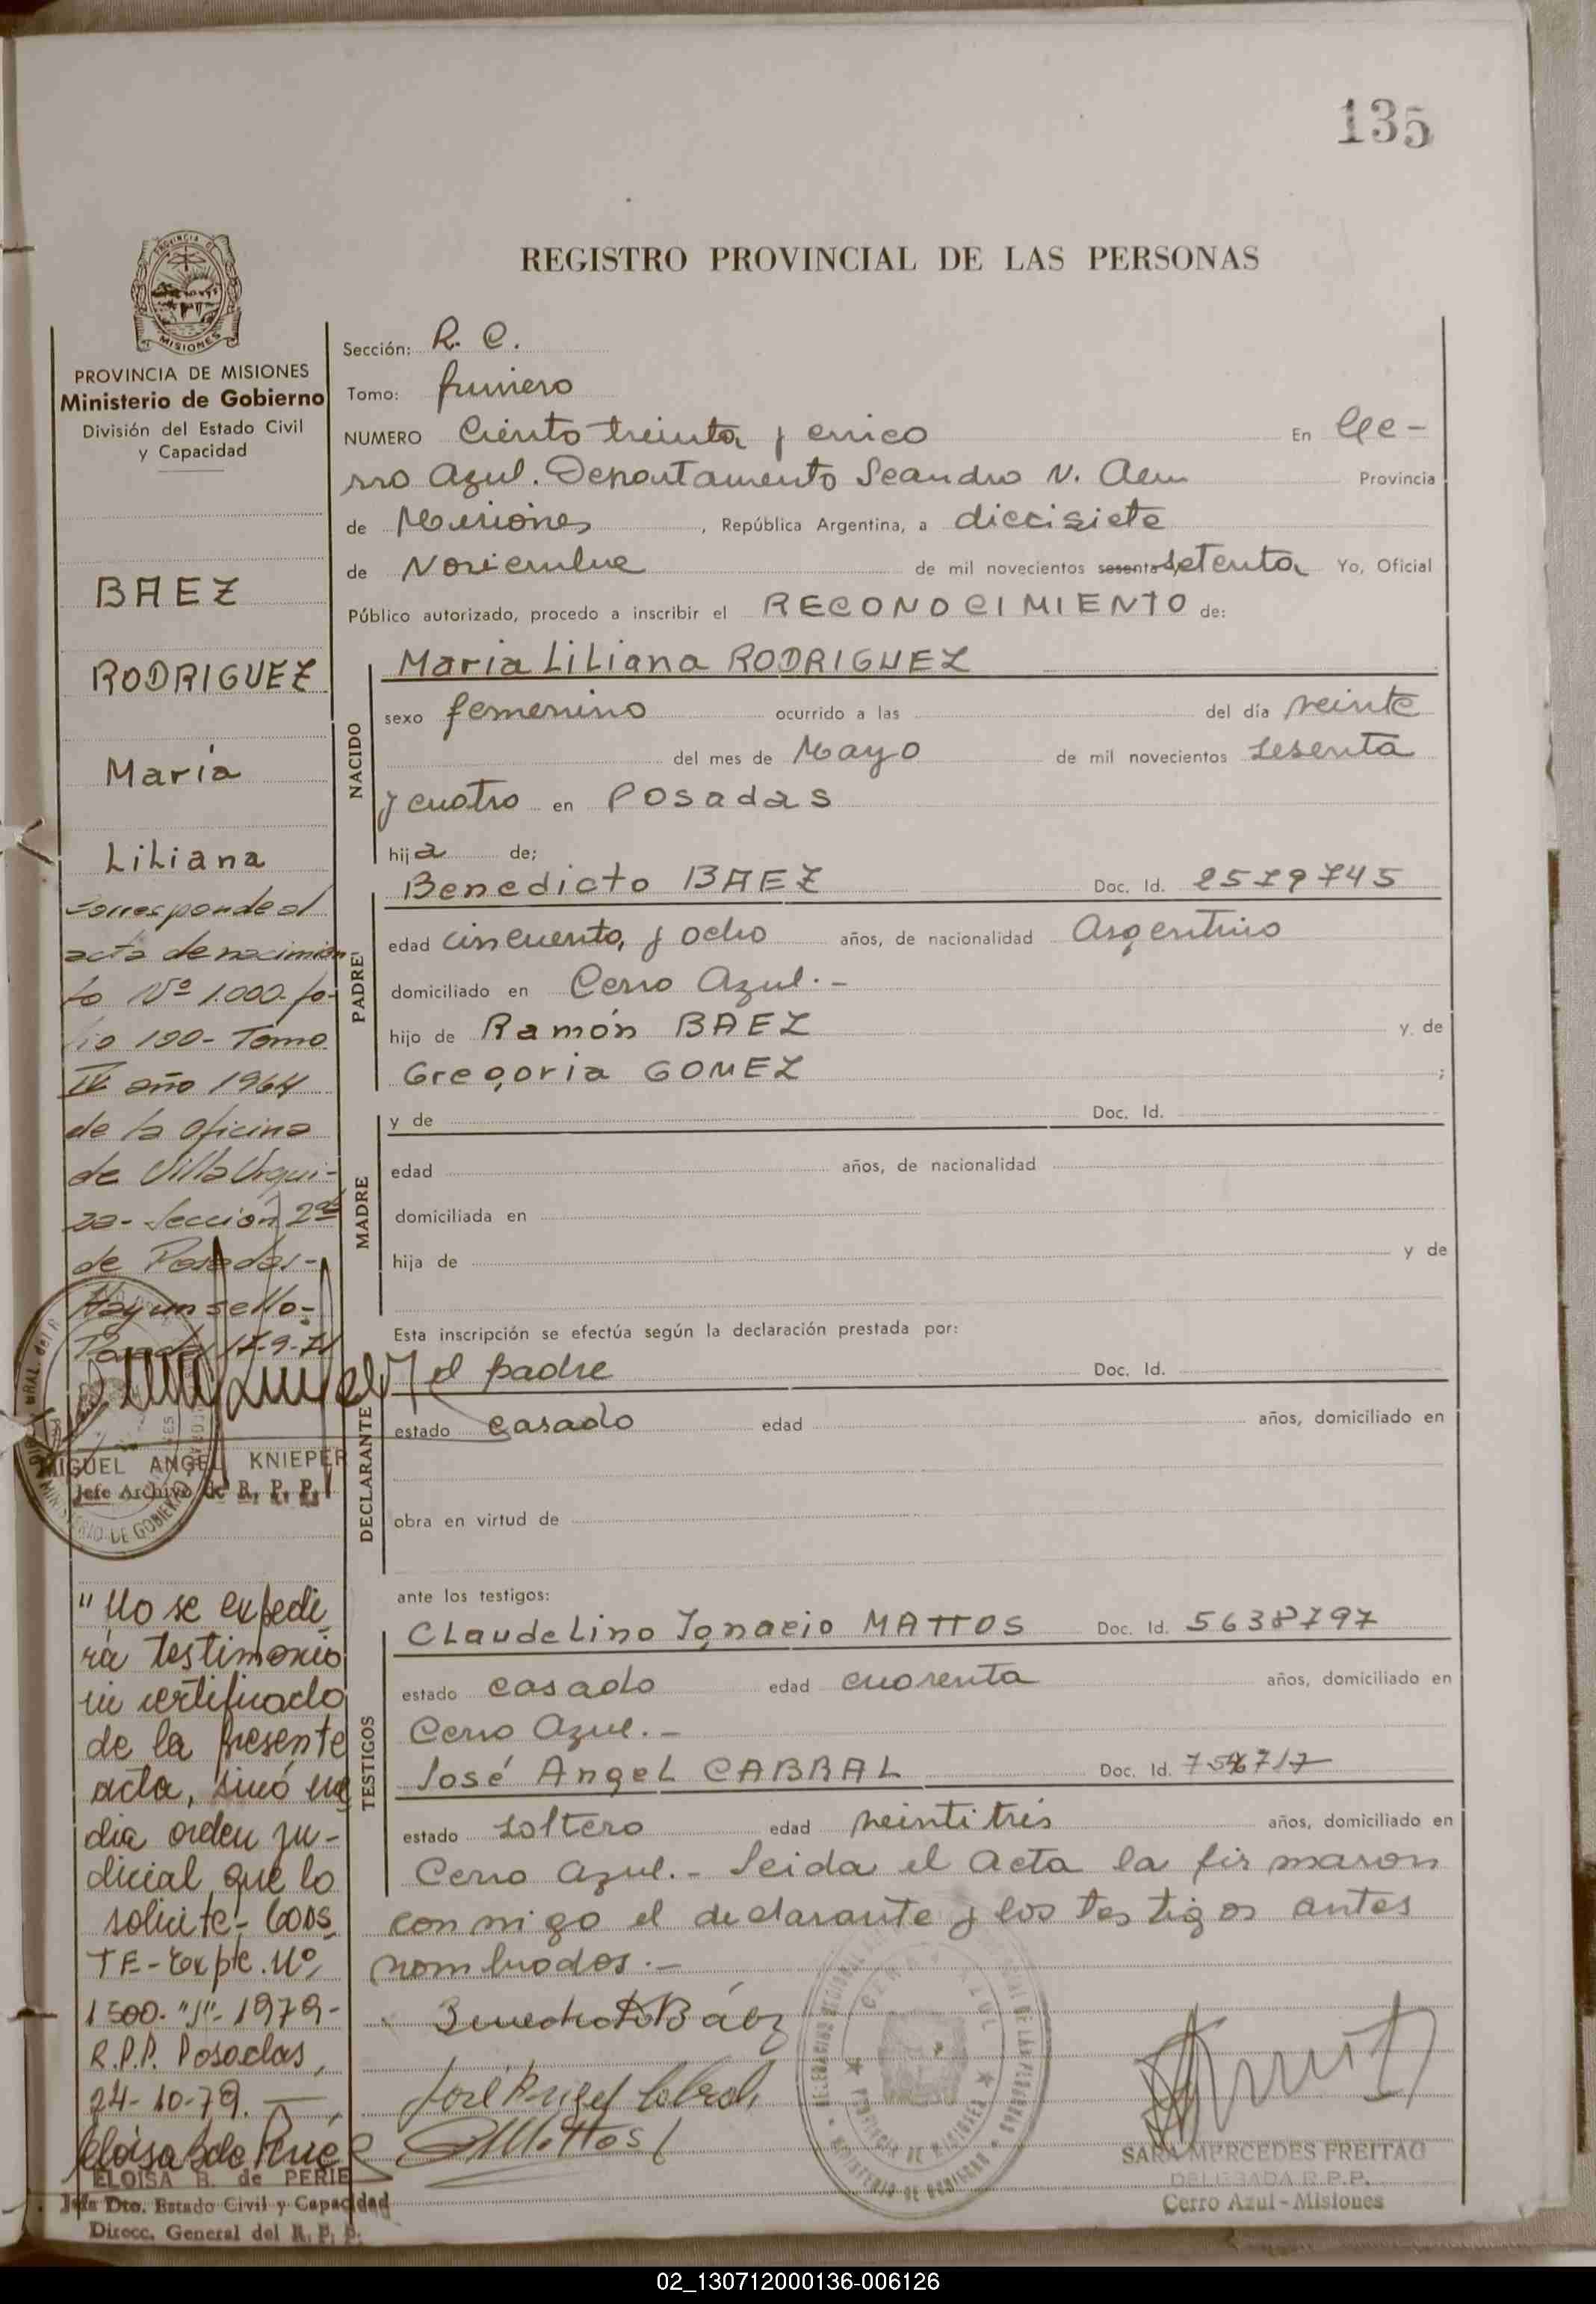 135
REGISTRO PROVINCIAL DE LAS PERSONAS
PROVINCIA DE
MISIONES
PROVINCIA DE MISIONES
Ministerio de Gobierno
División del Estado Civil
y Capacidad
BAEZ
RODRIGUEZ
María
Liliana
Corresponde al
acta de nacimien
to Nº 1.000. fo-
lio 100- Tomo
IV año 1964
de la oficina
de Villa Urqui-
za- Sección 2da
de Posadas-
Hay un sello-
17-9-71
MIGUEL ANGEL KNIEPER
Jefe Archivo de R. P. P.
"No se expedi
rá testimonio
ni certificado
de la presente
acta, sinó me
dia orden ju-
dicial que lo
solicite- Cons
TE- Expte. Nº
1500. "J"- 1979-
R.P.P. Posadas,
24-10-79.
ELOISA B. de PERIE
Jefa Dto. Estado Civil y Capacidad
Direcc. General del R. P. P.
Sección: R. C.
Tomo: primero
NUMERO Ciento treinta y cinco En Ce-
rro Azul. Departamento Leandro N. Alem Provincia
de Misiones, República Argentina, a diecisiete
de Noviembre de mil novecientos sesenta setenta Yo, Oficial
Público autorizado, procedo a inscribir el RECONOCIMIENTO de:
NACIDO
Maria Liliana RODRIGUEZ
sexo femenino ocurrido a las del día veinte
del mes de Mayo de mil novecientos sesenta
y cuatro en Posadas
hija de;
PADRE
Benedicto BAEZ Doc. Id. 2579745
edad cincuenta y ocho años, de nacionalidad Argentino
domiciliado en Cerro Azul.-
hijo de Ramón BAEZ y. de
Gregoria GOMEZ ;
MADRE
y de Doc. Id.
edad años, de nacionalidad
domiciliada en
hija de y de
Esta inscripción se efectúa según la declaración prestada por:
DECLARANTE
el padre Doc. Id.
estado casado edad años, domiciliado en
obra en virtud de
ante los testigos:
TESTIGOS
Claudelino Ignacio MATTOS Doc. Id. 5638797
estado casado edad cuarenta años, domiciliado en
Cerro Azul.-
José Angel CABRAL Doc. Id.
estado soltero edad veintitrés años, domiciliado en
Cerro Azul.- Leida el Acta la firmaron
conmigo el declarante y los testigos antes
nombrados.-
Benedicto Báez
José Angel Cabral
Mattos
CERRO AZUL
PROVINCIA DE MISIONES
MINISTERIO DE GOBIERNO
SARA MERCEDES FREITAG
DELEGADA R.P.P.
Cerro Azul - Misiones
02_130712000136-006126